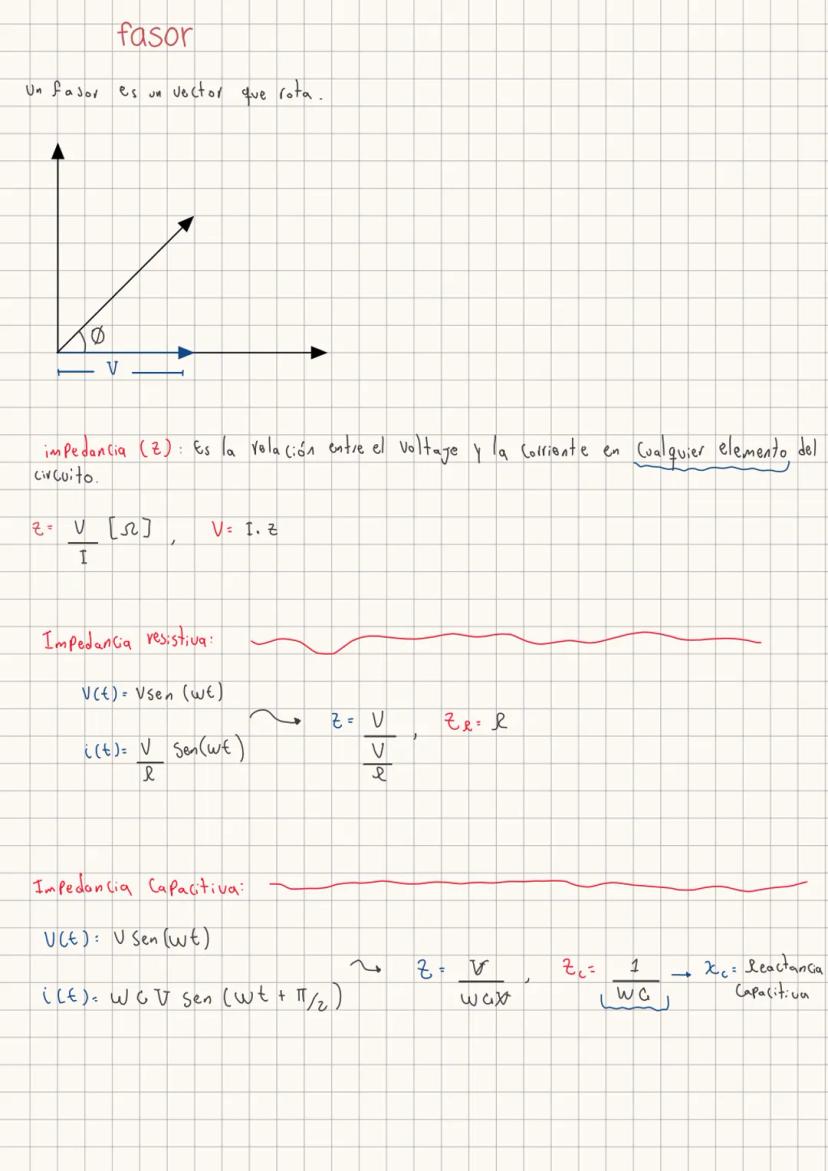 fasor
Un fasor es un vector que rota.
Ø
V
impedancia (Z): Es la relación entre el voltaje y la corriente en cualquier elemento del
circuito.
Z = V/I [Ω] , V = I . Z
Impedancia resistiva:
V(t) = V sen (wt)
i(t) = V/R sen(wt)
Z = V/(V/R) , Z_R = R
Impedancia Capacitiva:
V(t) : V sen (wt)
i(t) = W C V sen (wt + π/2)
Z = V/(W C V) , Z_c = 1/(W C) → X_c = Reactancia
Capacitiva